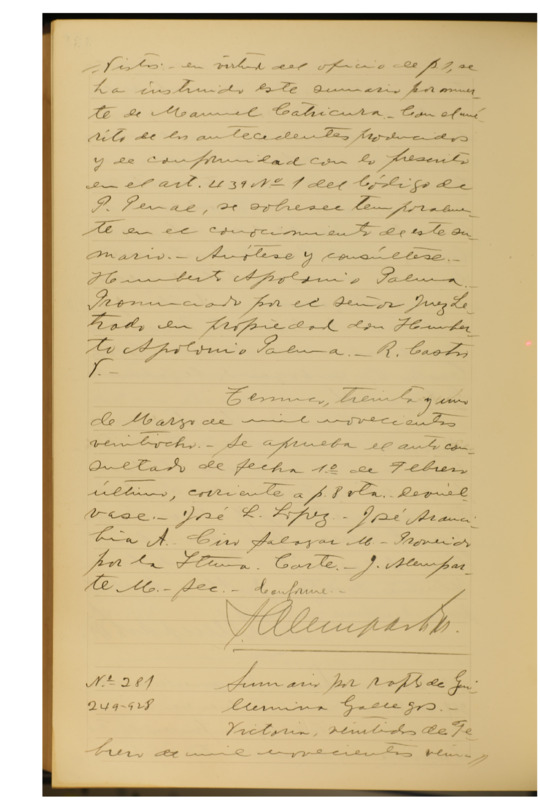 Vistos:- en virtud del oficio de f 1, se
ha instruido este sumario por muer-
te de Manuel Catricura.- Con el mé-
rito de los antecedentes producidos
y de conformidad con lo prescrito
en el art. 439 Nº 1 del Código de
P. Penal, se sobresee temporalmen-
te en el conocimiento de este su-
mario.- Anótese y consúltese.-
Humberto Apolonio Palma.
Pronunciado por el señor Juez Le-
trado en propiedad don Humber-
to Apolonio Palma.- R. Castro
V.-
Temuco, treinta y uno
de Marzo de mil novecientos
veintiocho.- Se aprueba el auto con-
sultado de fecha 1º de Febrero
último, corriente a f. 8 vta. Devuél-
vase.- José L. López.- José Aranci-
bia A. Ciro Salazar M.- Proveido
por la Iltma. Corte.- J. Alempar-
te M.- Sec.- Conforme.-
Nº 281 Sumario por rapto de Gui-
249-928 llermina Gallegos.-
Victoria, veintidos de Fe-
brero de mil novecientos vein-